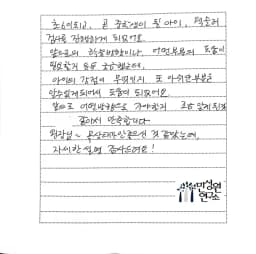 초6이되고, 곧 중학생이 될 아이, 떡을려
검사를 진행하게 되었어요.
앞으로의 학습방향이나, 어떤부분의 도움이
필요할지 등을 궁금했는데,
아이의 강점이 무엇인지, 또 아쉬운부분은
알수있게되어서 도움이 되었어요.
앞으로 어떤방향으로 가야할지 조금 알게 된것
같아서 만족합니다
원장님~ 목상태도 안좋으신 것 같았는데,
자세한 설명 감사드려요!
연구소